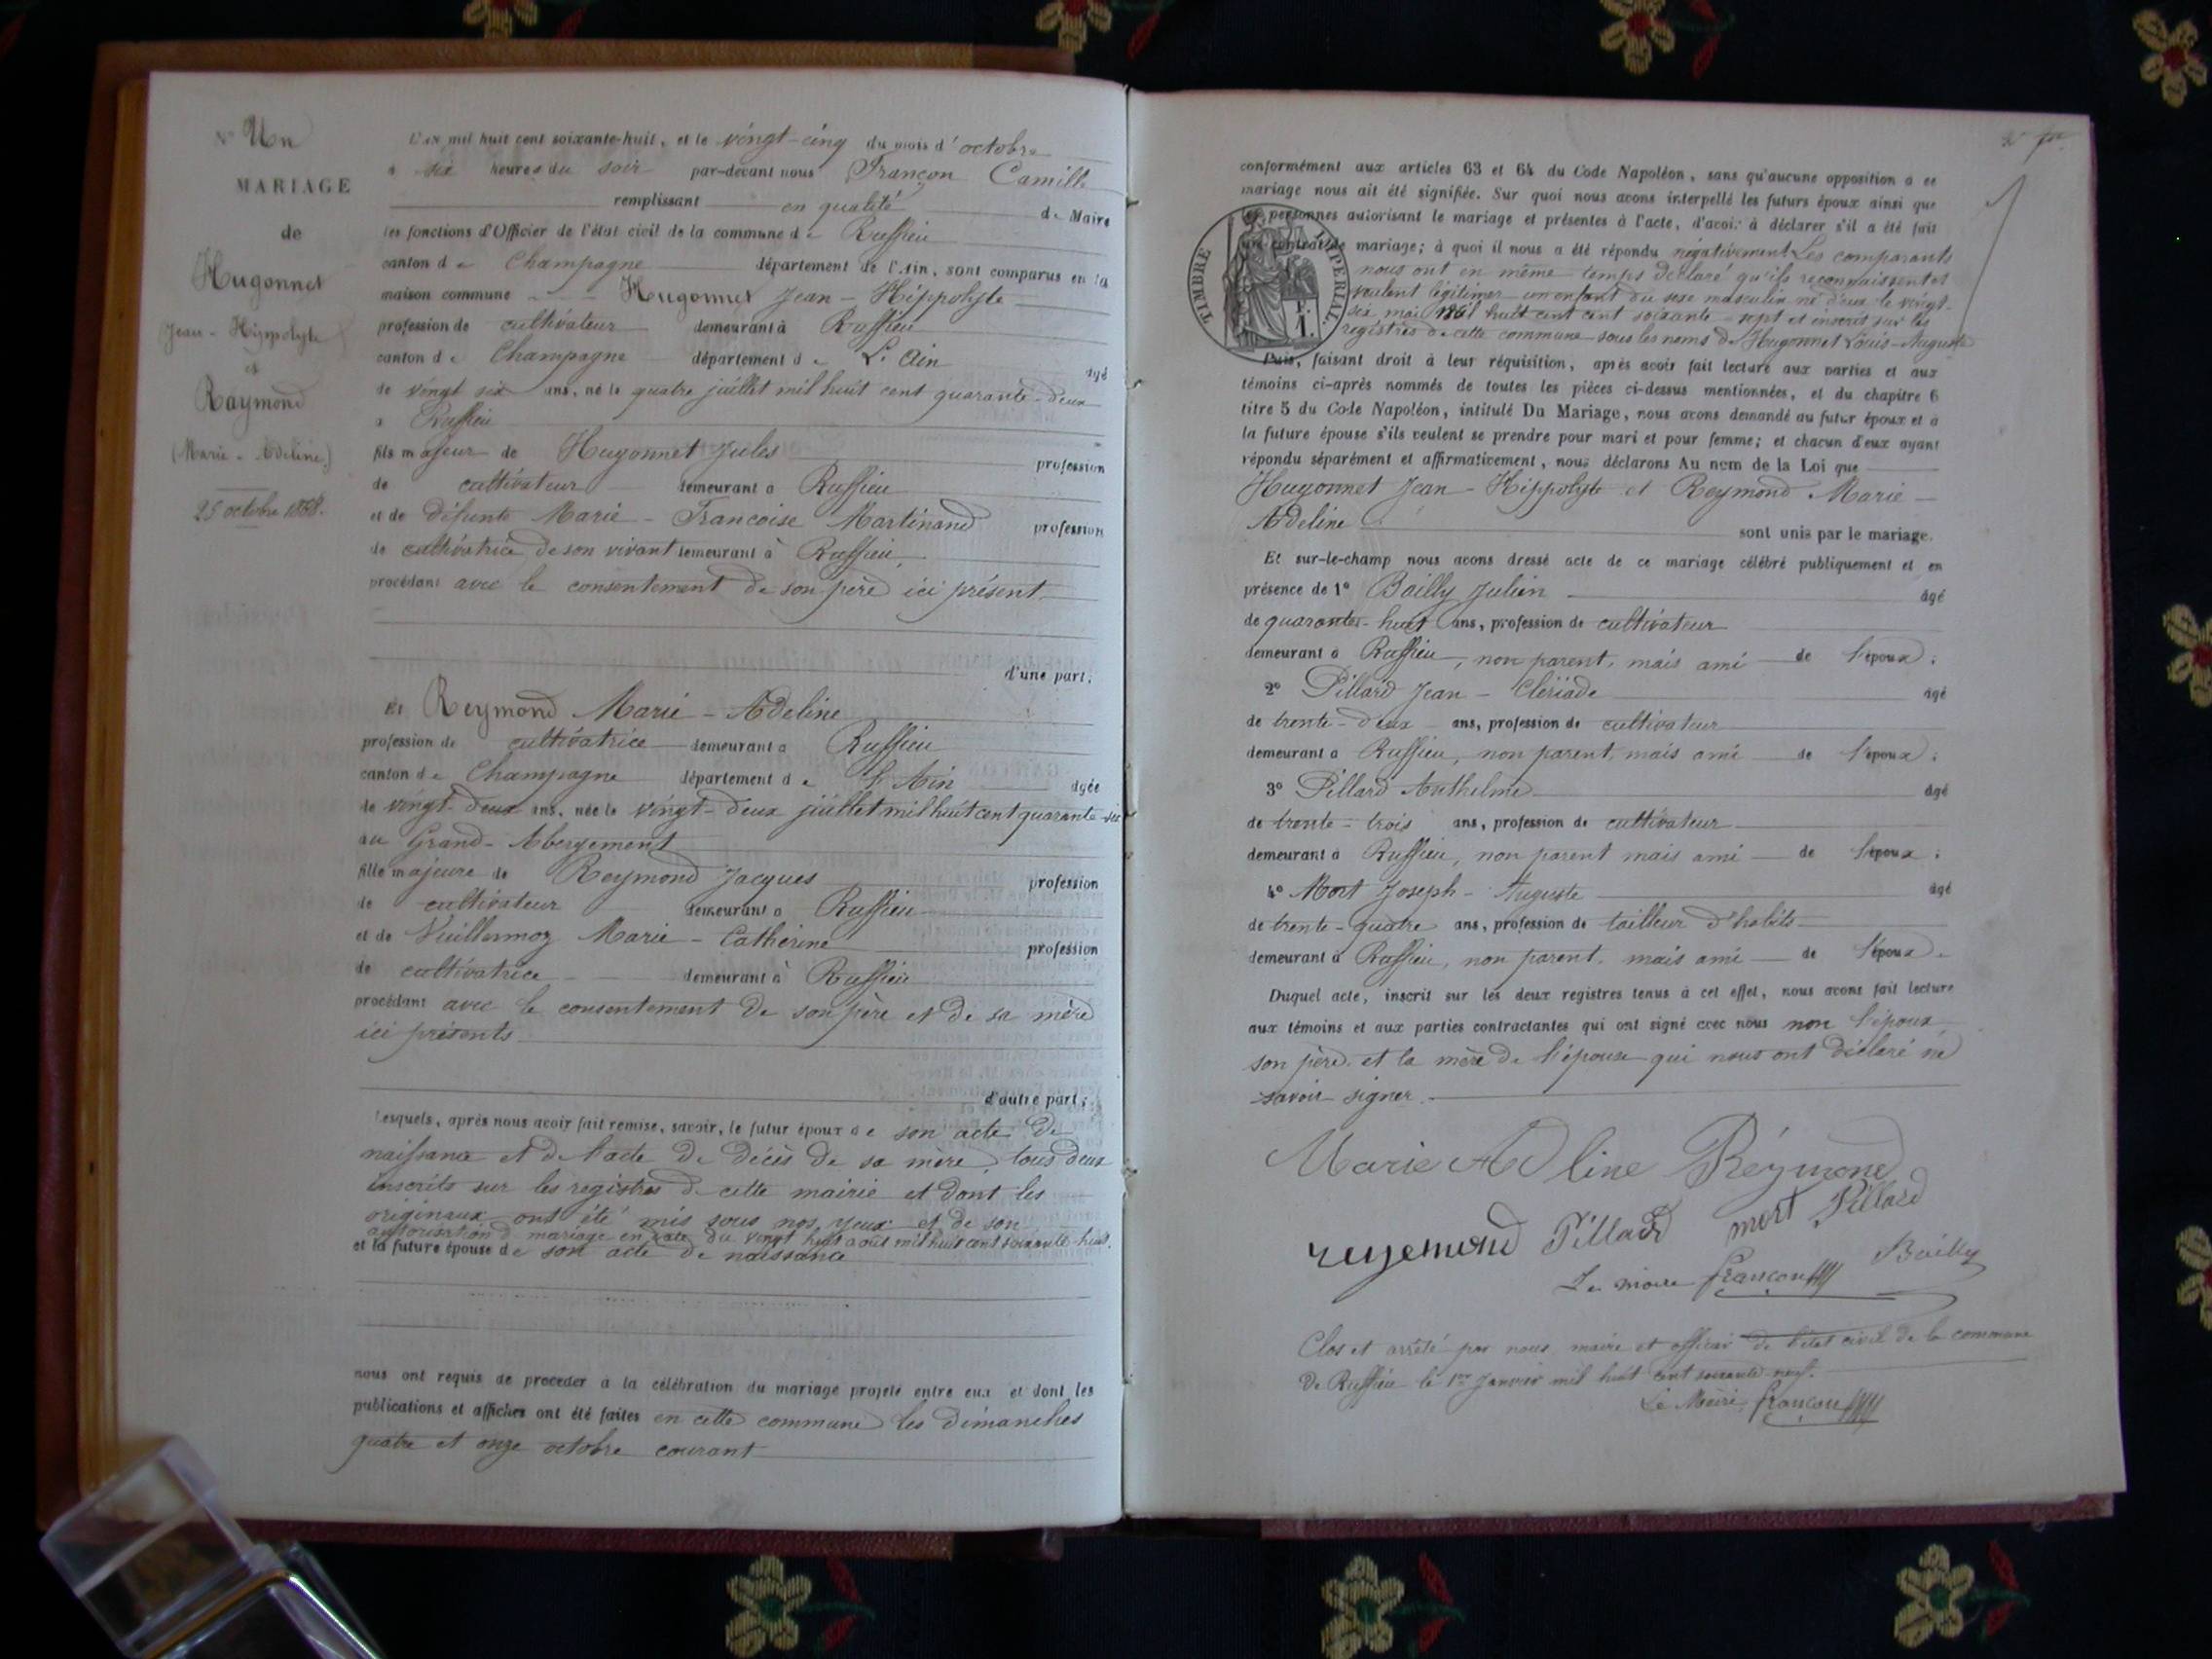 N° Un
MARIAGE
de
Hugonnet
Jean - Hippolyte
et
Raymond
(Marie - Adeline)
25 octobre 1868.
L'an mil huit cent soixante-huit, et le vingt-cinq du mois d'octobre
à six heures du soir par-devant nous Françon Camille
remplissant en qualité de Maire
les fonctions d'Officier de l'état civil de la commune de Ruffieu
canton de Champagne département de l'Ain, sont comparus en la
maison commune Hugonnet Jean - Hippolyte
profession de cultivateur demeurant à Ruffieu
canton de Champagne département de L'Ain âgé
de vingt six ans, né le quatre juillet mil huit cent quarante-deux
à Ruffieu
fils majeur de Hugonnet Jules profession
de cultivateur demeurant à Ruffieu
et de défunte Marie - Francoise Martinand profession
de cultivatrice de son vivant demeurant à Ruffieu,
procédant avec le consentement de son père ici présent
d'une part;
Et Reymond Marie - Adeline
profession de cultivatrice demeurant à Ruffieu
canton de Champagne département de L'Ain âgée
de vingt-deux ans, née le vingt-deux juillet mil huit cent quarante-six
au Grand-Abergement
fille majeure de Reymond Jacques profession
de cultivateur demeurant à Ruffieu
et de Vuillermoz Marie - Catherine profession
de cultivatrice demeurant à Ruffieu
procédant avec le consentement de son père et de sa mère
ici présents
d'autre part;
Lesquels, après nous avoir fait remise, savoir, le futur époux de son acte de
naissance et de l'acte de décès de sa mère, tous deux
inscrits sur les registres de cette mairie et dont les
originaux ont été mis sous nos yeux et de son
autorisation de mariage en date du vingt huit août mil huit cent soixante-huit.
et la future épouse de son acte de naissance
nous ont requis de procéder à la célébration du mariage projeté entre eux et dont les
publications et affiches ont été faites en cette commune les dimanches
quatre et onze octobre courant
conformément aux articles 63 et 64 du Code Napoléon, sans qu'aucune opposition à ce
mariage nous ait été signifiée. Sur quoi nous avons interpellé les futurs époux ainsi que
les personnes autorisant le mariage et présentes à l'acte, d'avoir à déclarer s'il a été fait
un contrat de mariage; à quoi il nous a été répondu négativement Les comparants
nous ont en même temps déclaré qu'ils reconnaissent et
veulent légitimer un enfant du sexe masculin né d'eux le vingt-
six mai 1861 huit cent cent soixante-sept et inscrit sur les
registres de cette commune sous les noms de Hugonnet Louis-Auguste
TIMBRE IMPERIAL
F.
1.
Puis, faisant droit à leur réquisition, après avoir fait lecture aux parties et aux
témoins ci-après nommés de toutes les pièces ci-dessus mentionnées, et du chapitre 6
titre 5 du Code Napoléon, intitulé Du Mariage, nous avons demandé au futur époux et à
la future épouse s'ils veulent se prendre pour mari et pour femme; et chacun d'eux ayant
répondu séparément et affirmativement, nous déclarons Au nom de la Loi que
Hugonnet Jean - Hippolyte et Reymond Marie -
Adeline
sont unis par le mariage.
Et sur-le-champ nous avons dressé acte de ce mariage célébré publiquement et en
présence de 1° Bailly Julien âgé
de quarante-huit ans, profession de cultivateur
demeurant à Ruffieu, non parent, mais ami de l'époux;
2° Pillard Jean - Clériade âgé
de trente-deux ans, profession de cultivateur
demeurant à Ruffieu, non parent, mais ami de l'époux;
3° Pillard Anthelme âgé
de trente-trois ans, profession de cultivateur
demeurant à Ruffieu, non parent mais ami de l'époux;
4° Mort Joseph - Auguste âgé
de trente-quatre ans, profession de tailleur d'habits
demeurant à Ruffieu, non parent, mais ami de l'époux.
Duquel acte, inscrit sur les deux registres tenus à cet effet, nous avons fait lecture
aux témoins et aux parties contractantes qui ont signé avec nous non l'époux
son père et la mère de l'épouse qui nous ont déclaré ne
savoir signer.
Marie Adline Réymond
reymond Pillard mort Pillard
Le maire françon Bailly
Clos et arrêté par nous, maire et officier de l'état civil de la commune
de Ruffieu le 1er Janvier mil huit cent soixante-neuf.
Le Maire, françon